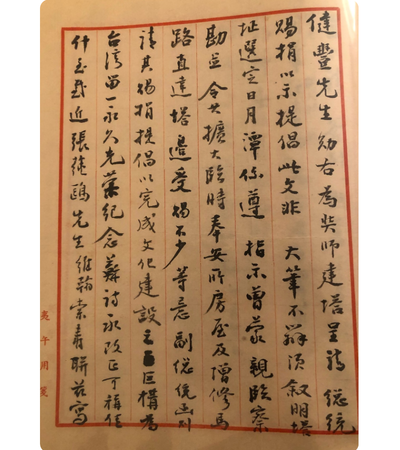 先生勛右為奘師建塔呈請 總統
賜捐以示提倡此文非 大筆不辦須敘明塔
址選定日月潭係遵 指示曾蒙 親臨察
勘並 令其擴大臨時奉安所房屋及增修馬
路直達塔邊受賜不少等意 副總統函則
請其賜捐提倡以完成文化建設之巨構為
台灣留一永久光榮紀念詩承改正可稱佳
什玉我近張鷗先生維翰索壽聯茲寫
夷午用箋